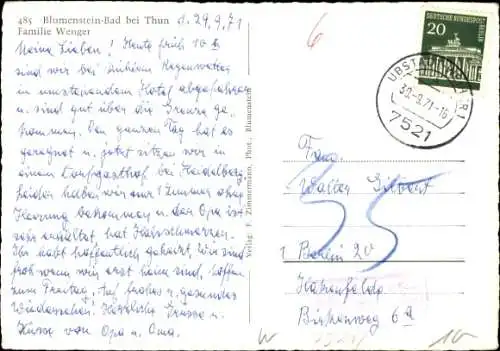 485 Blumenstein-Bad bei Thun d. 29.9.71
Familie Wenger
Meine Lieben! Heute früh 10 h
sind wir bei Regenwetter
in Hotel abgefahren
u. sind gut über die Grenze ge-
kommen. Den ganzen Tag hat es
geregnet u. jetzt sitzen wir in
einem Dorfgasthof bei Heidelberg,
leider haben wir nur 1 Zimmer ohne
Heizung bekommen u. der Opa ist
sehr erkältet, hat Halsschmerzen.
Ihr habt hoffentlich geheizt, wir sind
froh wenn wir erst daheim sind, hoffen
zum Freitag. Auf frohes u. gesundes
Wiedersehen. Herzliche Grüsse u.
Küsse von Opa u. Oma.
Verlag: F. Zimmermann, Phot., Blumenstein
6
DEUTSCHE BUNDESPOST
BERLIN
20
UBSTADT
30.-9.71-16
7521
35
Frau
Walter
1 Berlin 20
Hakenfelde
Birkenweg 6a
W
10